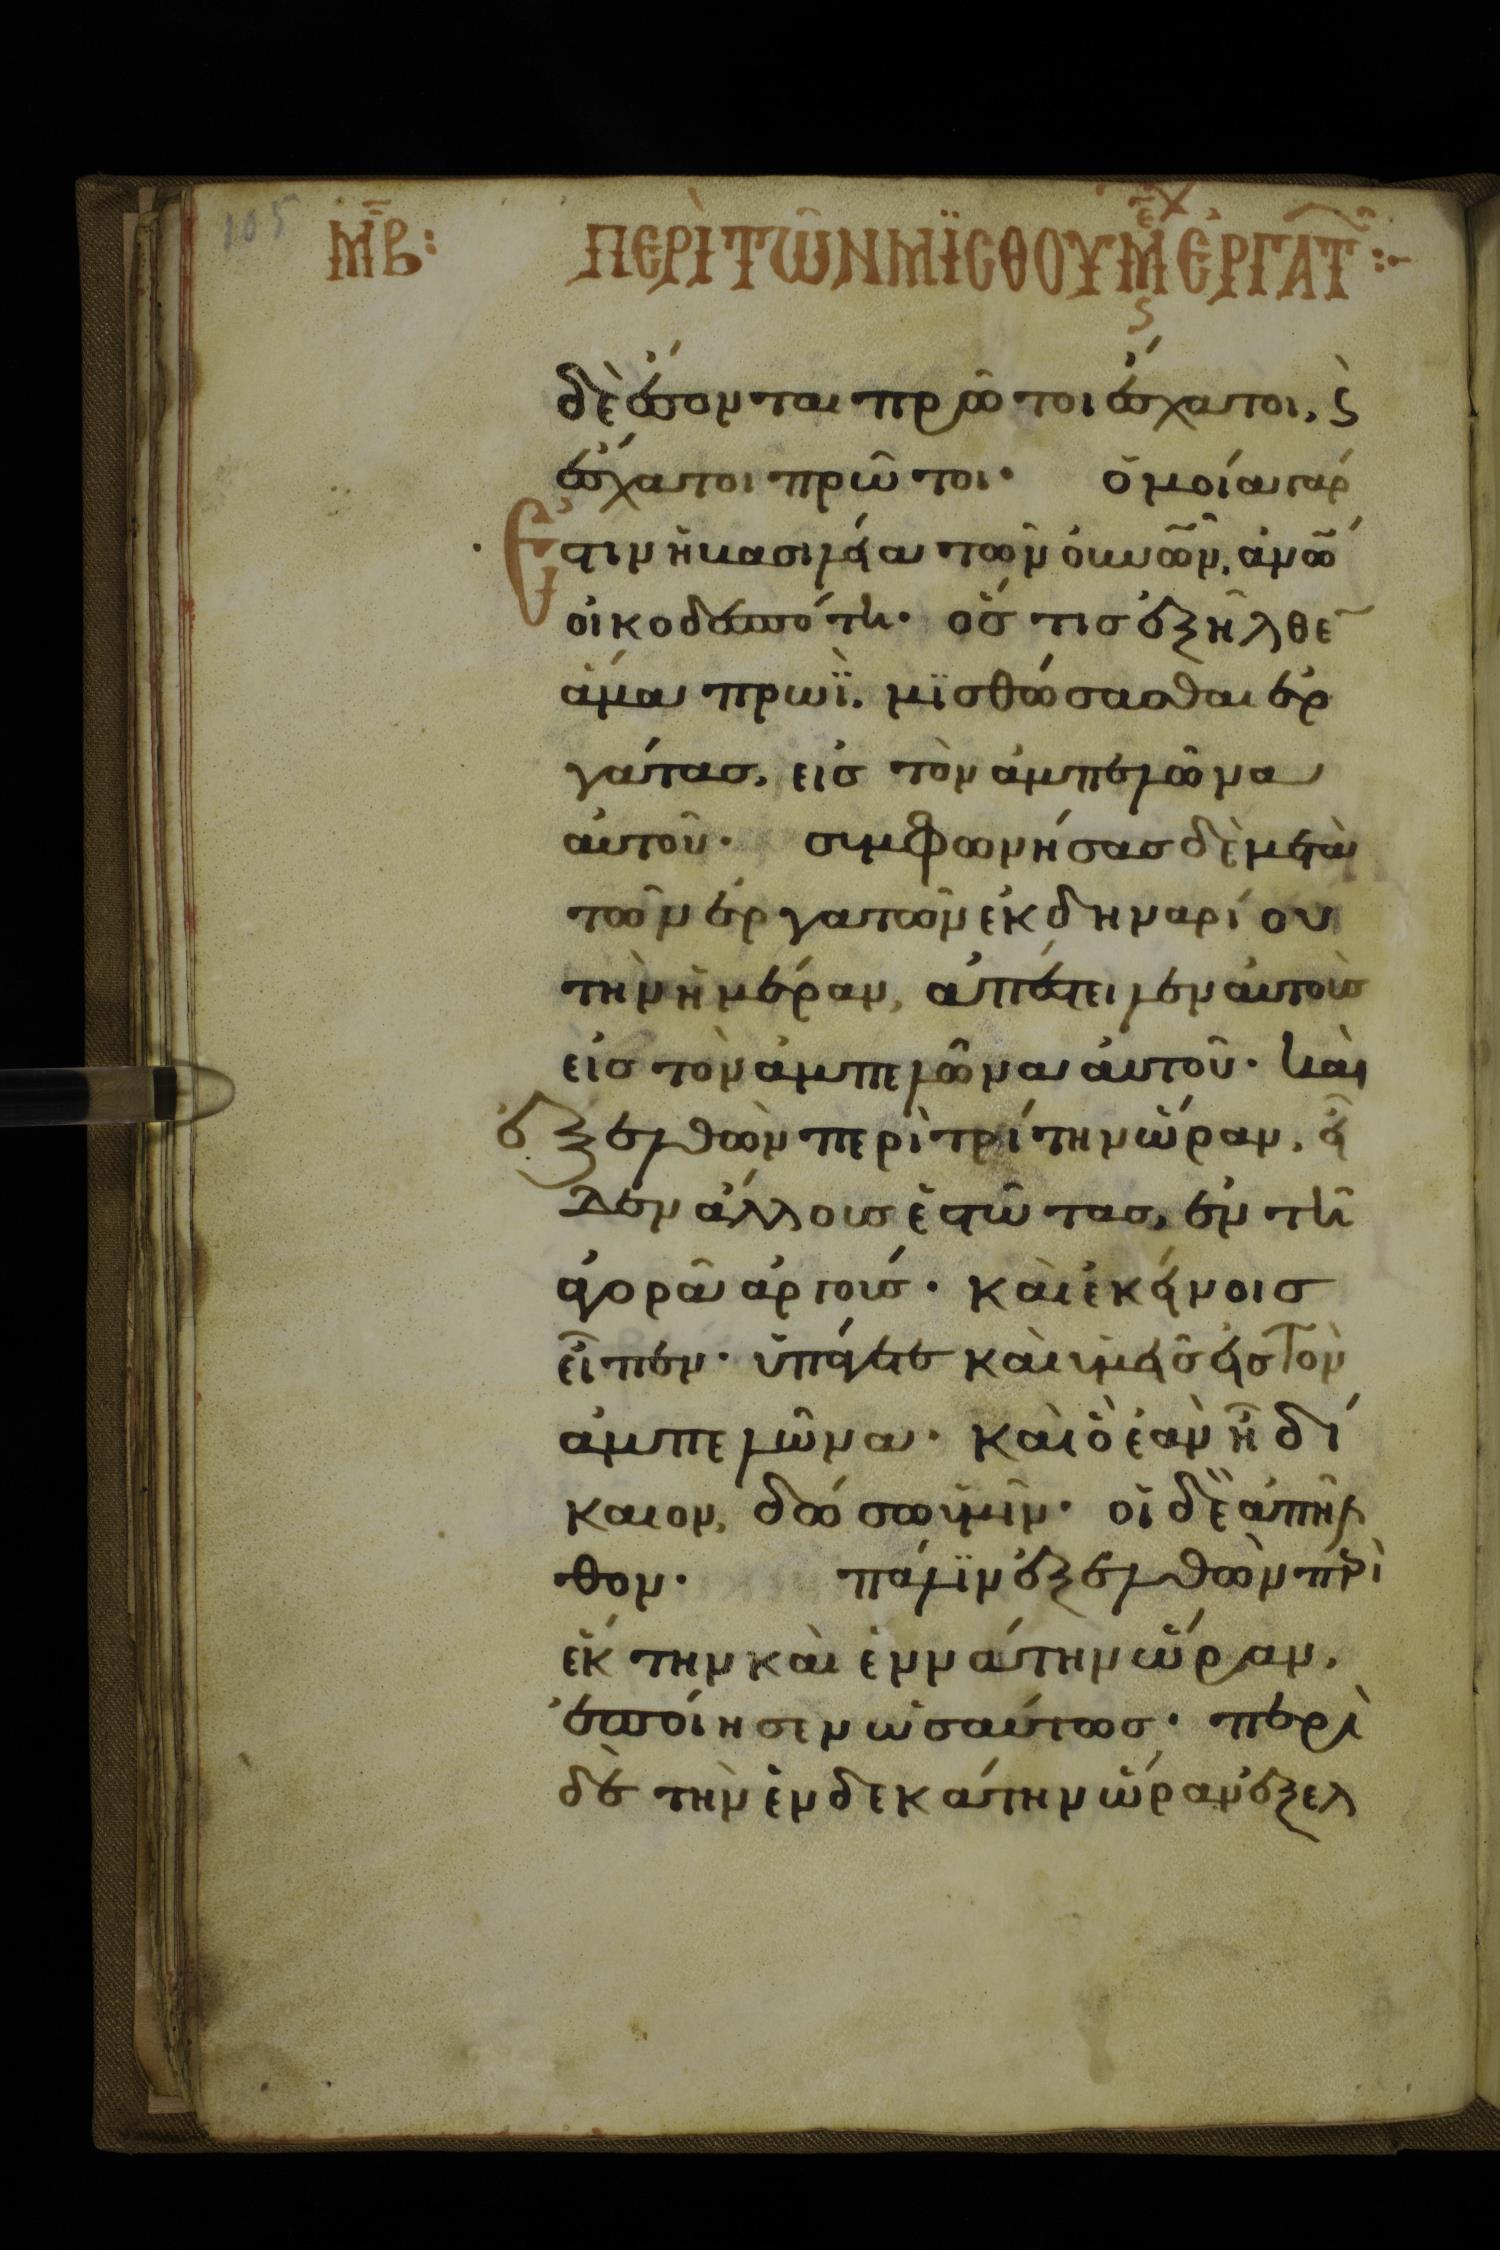 105
ΜΒ: ΠΕΡῚ ΤΩ͂Ν ΜΪΣΘΟΥΜ ἘΡΓΑΤ͂ :-
δὲ ἔσονται πρῶτοι ἔσχατοι, ϛ
ἔσχατοι πρῶτοι· ὁμοία γάρ
ἐστιν ἡ βασιλεία τῶν οὐνῶν, ἀνῶ
οἰκοδεσπότη· ὅστισ ἐξῆλθε
ἅμα πρωῒ. μϊσθώσασθαι ἐρ
γάτασ, εἰσ τὸν ἀμπελῶνα
αὐτοῦ· συμφωνήσασ δὲ μετὰ
τῶν ἐργατῶν ἐκ δηναρίου
τὴν ἡμέραν, ἀπέστειλεν αὐτοὺσ
εἰσ τὸν ἀμπελῶνα αὐτοῦ· καὶ
ἐξελθὼν περὶ τρίτην ὥραν, εἶ
δεν ἄλλουσ ἑστῶτασ, ἐν τῆ
ἀγορᾶ ἀργούσ· καὶ ἐκείνοισ
εἶπεν· ὑπάγετε καὶ ὑμεῖσ εἰσ τὸν
ἀμπελῶνα· καὶ ὃ ἐὰν ἦ δί
καιον, δώσω ὑμῖν· οἱ δὲ ἀπῆλ
θον· πάλϊν ἐξελθὼν περὶ
ἕκτην καὶ ἐννάτην ὥραν,
ἐποίησεν ὡσαύτωσ· περὶ
δὲ τὴν ἑνδεκάτην ὥραν ἐξελ